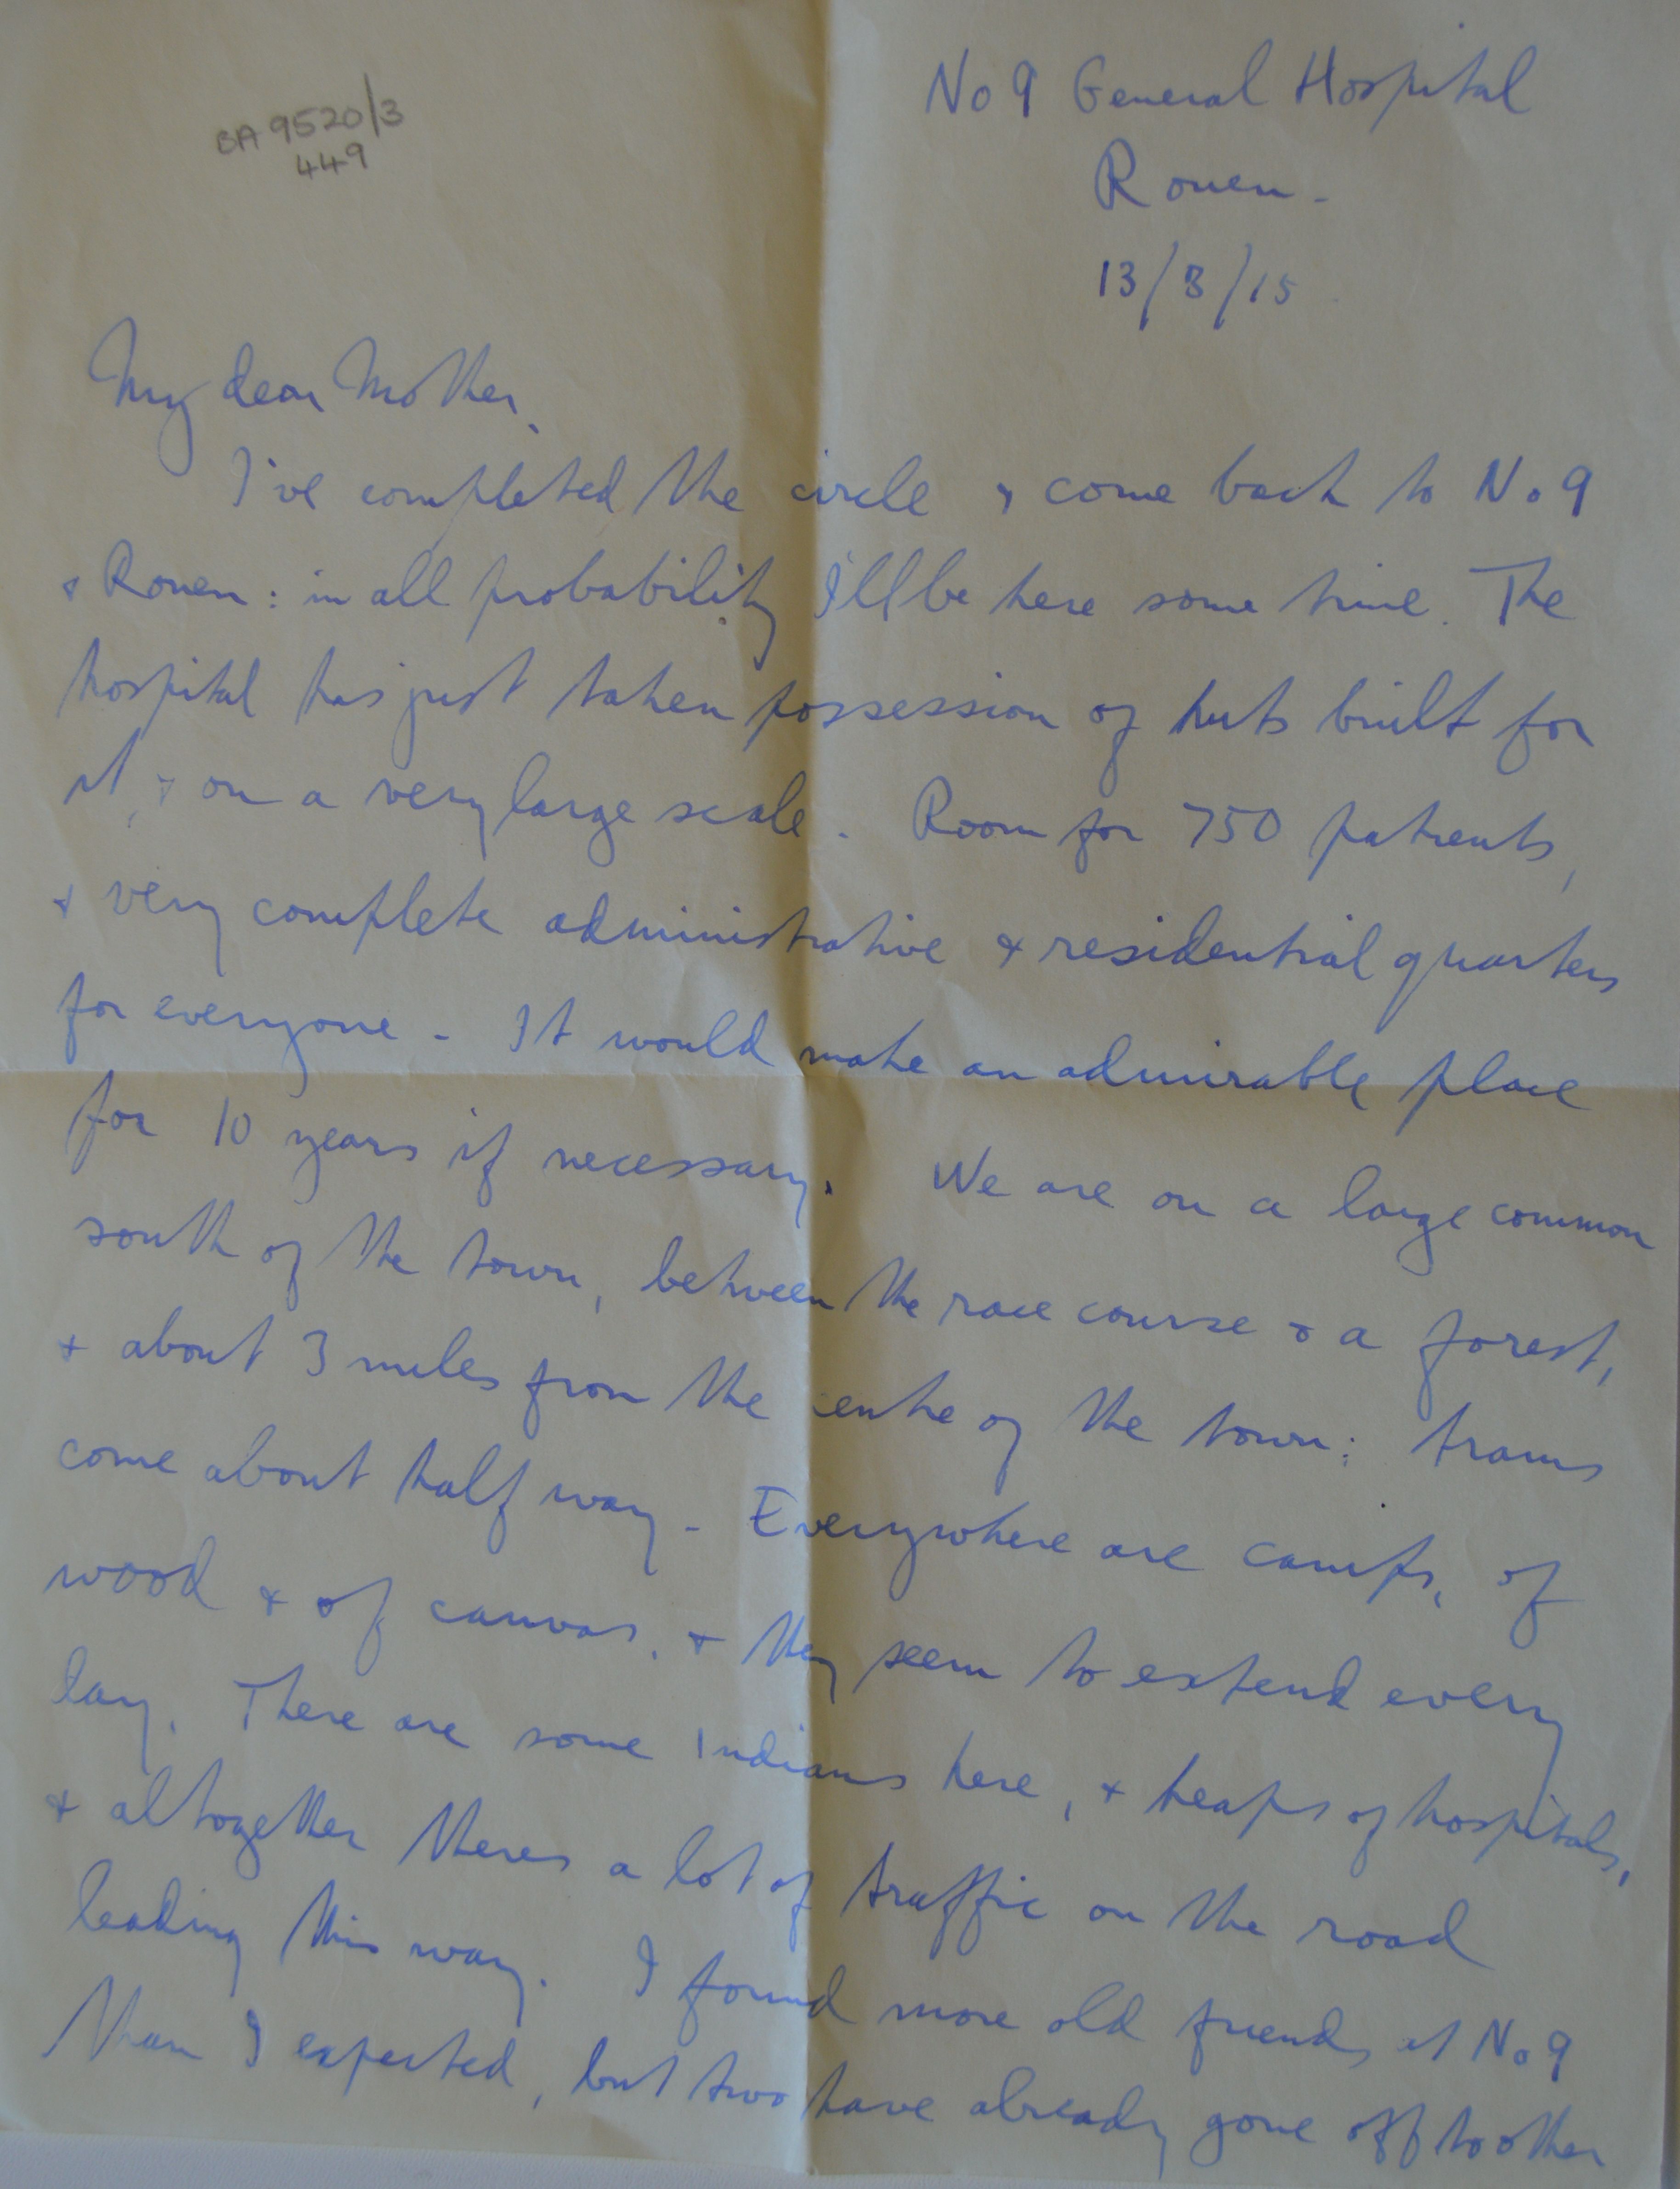 BA 9520/3
449
No 9 General Hospital
Rouen -
13/3/15
My dear Mother,
I've completed the circle & come back to No 9
& Rouen: in all probability I'll be here some time. The
hospital has just taken possession of huts built for
it, & on a very large scale. Room for 750 patients,
& very complete administrative & residential quarters
for everyone - It would make an admirable place
for 10 years if necessary. We are on a large common
south of the town, between the race course & a forest,
& about 3 miles from the centre of the town: trams
come about half way - Everywhere are camps, of
wood & of canvas, & they seem to extend every
day. There are some Indians here, & heaps of hospitals,
& altogether theres a lot of traffic on the road
leading this way. I found more old friends at No 9
than I expected, but two have already gone off to other